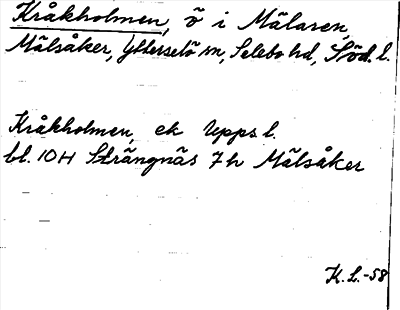 Kråkholmen, ö i Mälaren,
Mälsåker, Ytterselö sn, Selebo hd, Söd. l.
Kråkholmen, ek Upps l.
bl. 10H Strängnäs 7h Mälsåker
K. L. -58